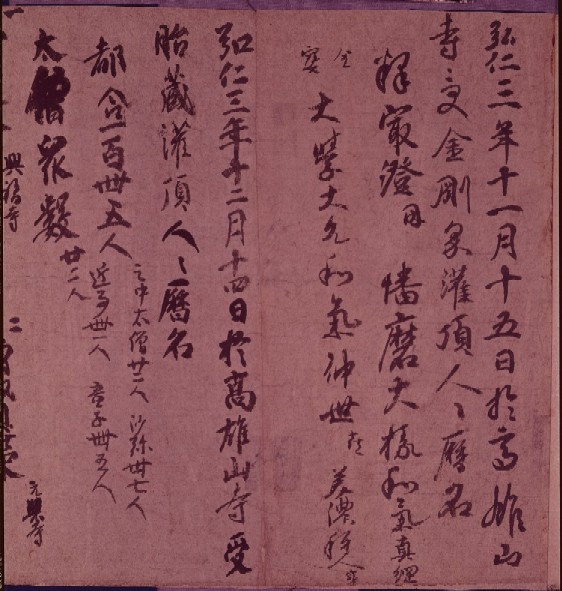 弘仁三年十一月十五日於高雄山
寺受金剛界灌頂人々暦名
釋最澄 因 播磨大掾和氣真綱
大學大允和氣仲世 喜 美濃種人
弘仁三年十二月十四日於高雄山寺受
胎藏灌頂人々暦名
都合一百卌五人
之中太僧廿二人 沙弥卌七人
近事卌一人 童子卌五人
太僧衆數 廿二人
興福寺
元興寺